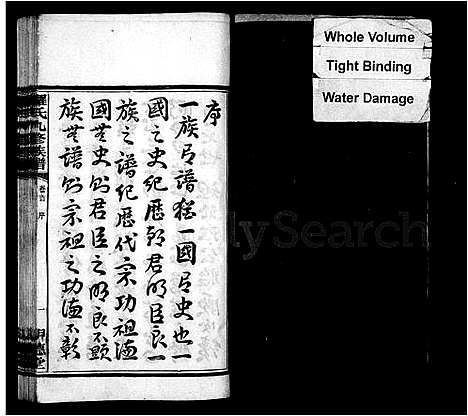 序
一族有譜猶一國有史也一
國之史紀歷朝君明臣良一
族之譜紀歷代宗功祖德
國無史則君臣之明良不顯
族無譜則宗祖之功德不彰
氏九修族譜
卷首 序
一
Whole Volume
Tight Binding
Water Damage
lySearch